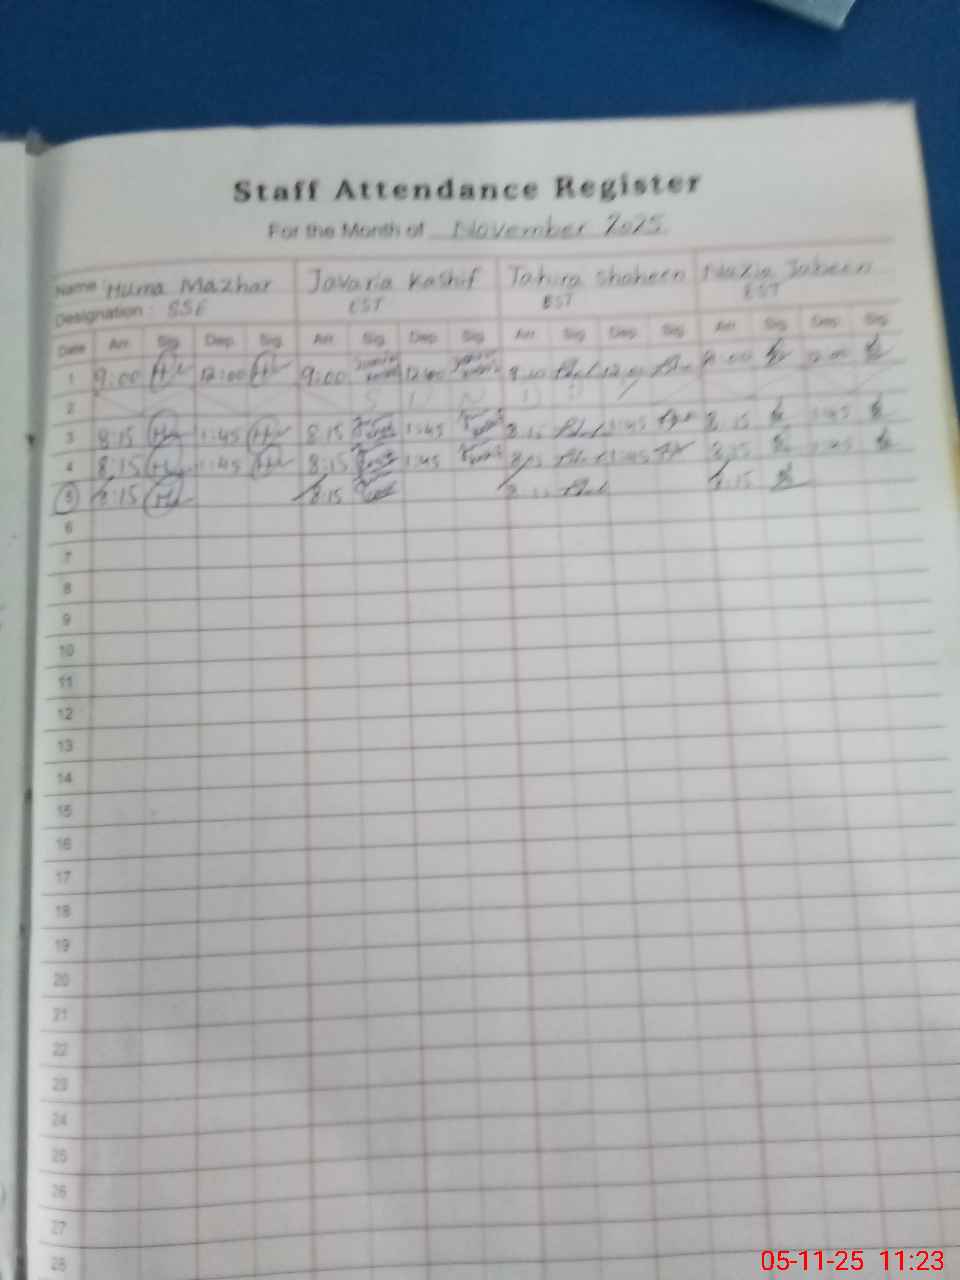 Staff Attendance Register
For the Month of November 2025
Name: Huma Mazhar Javaria Kashif Tahira Shaheen Nazia Jabeen
Designation: SSE EST EST EST
Date Arr. Sig. Dep. Sig. Arr. Sig. Dep. Sig. Arr. Sig. Dep. Sig. Arr. Sig. Dep. Sig.
1 9:00 12:00 9:00 12:00
2 S U N D A Y
3 8:15 1:45 8:15 1:45 8:15 1:45 8:15 1:45
4 8:15 1:45 8:15 1:45 8:15 1:45 8:15 1:45
5 8:15 8:15 8:15
6
7
8
9
10
11
12
13
14
15
16
17
18
19
20
21
22
23
24
25
26
27
28
05-11-25 11:23